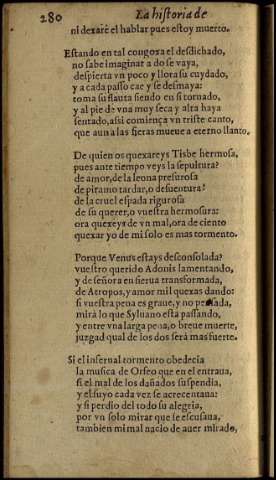 280 La historia de
ni dexare el hablar pues estoy muerto.
Estando en tal congoxa el desdichado,
no sabe imaginar a do se vaya,
despierta vn poco y llora su cuydado,
y a cada passo cae y se desmaya:
toma su flauta siendo en si tornado,
y al pie de vna muy seca y alta haya
sentado, assi comiença vn triste canto,
que aun a las fieras mueue a eterno llanto.
De quien os quexareys Tisbe hermosa,
pues ante tiempo veys la sepultura?
de amor, de la leona presurosa
de piramo tardar, o desuentura?
de la cruel espada rigurosa
de su querer, o vuestra hermosura:
ora quexeys de vn mal, ora de ciento
quexar yo de mi solo es mas tormento.
Porque Venus estays desconsolada?
vuestro querido Adonis lamentando,
y de señora en sierua transformada,
de Atropos, y amor mil quexas dando:
si vuestra pena es graue, y no pensada,
mirà lo que Syluano està passando,
y entre vna larga pena, o breue muerte,
juzgad qual de los dos serà mas fuerte.
Si el infernal tormento obedecia
la musica de Orfeo que en el entraua,
si el mal de los dañados suspendia,
y el suyo cada vez se acrecentaua:
y si perdio del todo su alegria,
por vn solo mirar que se escusaua,
tambien mi mal nacio de auer mirado,